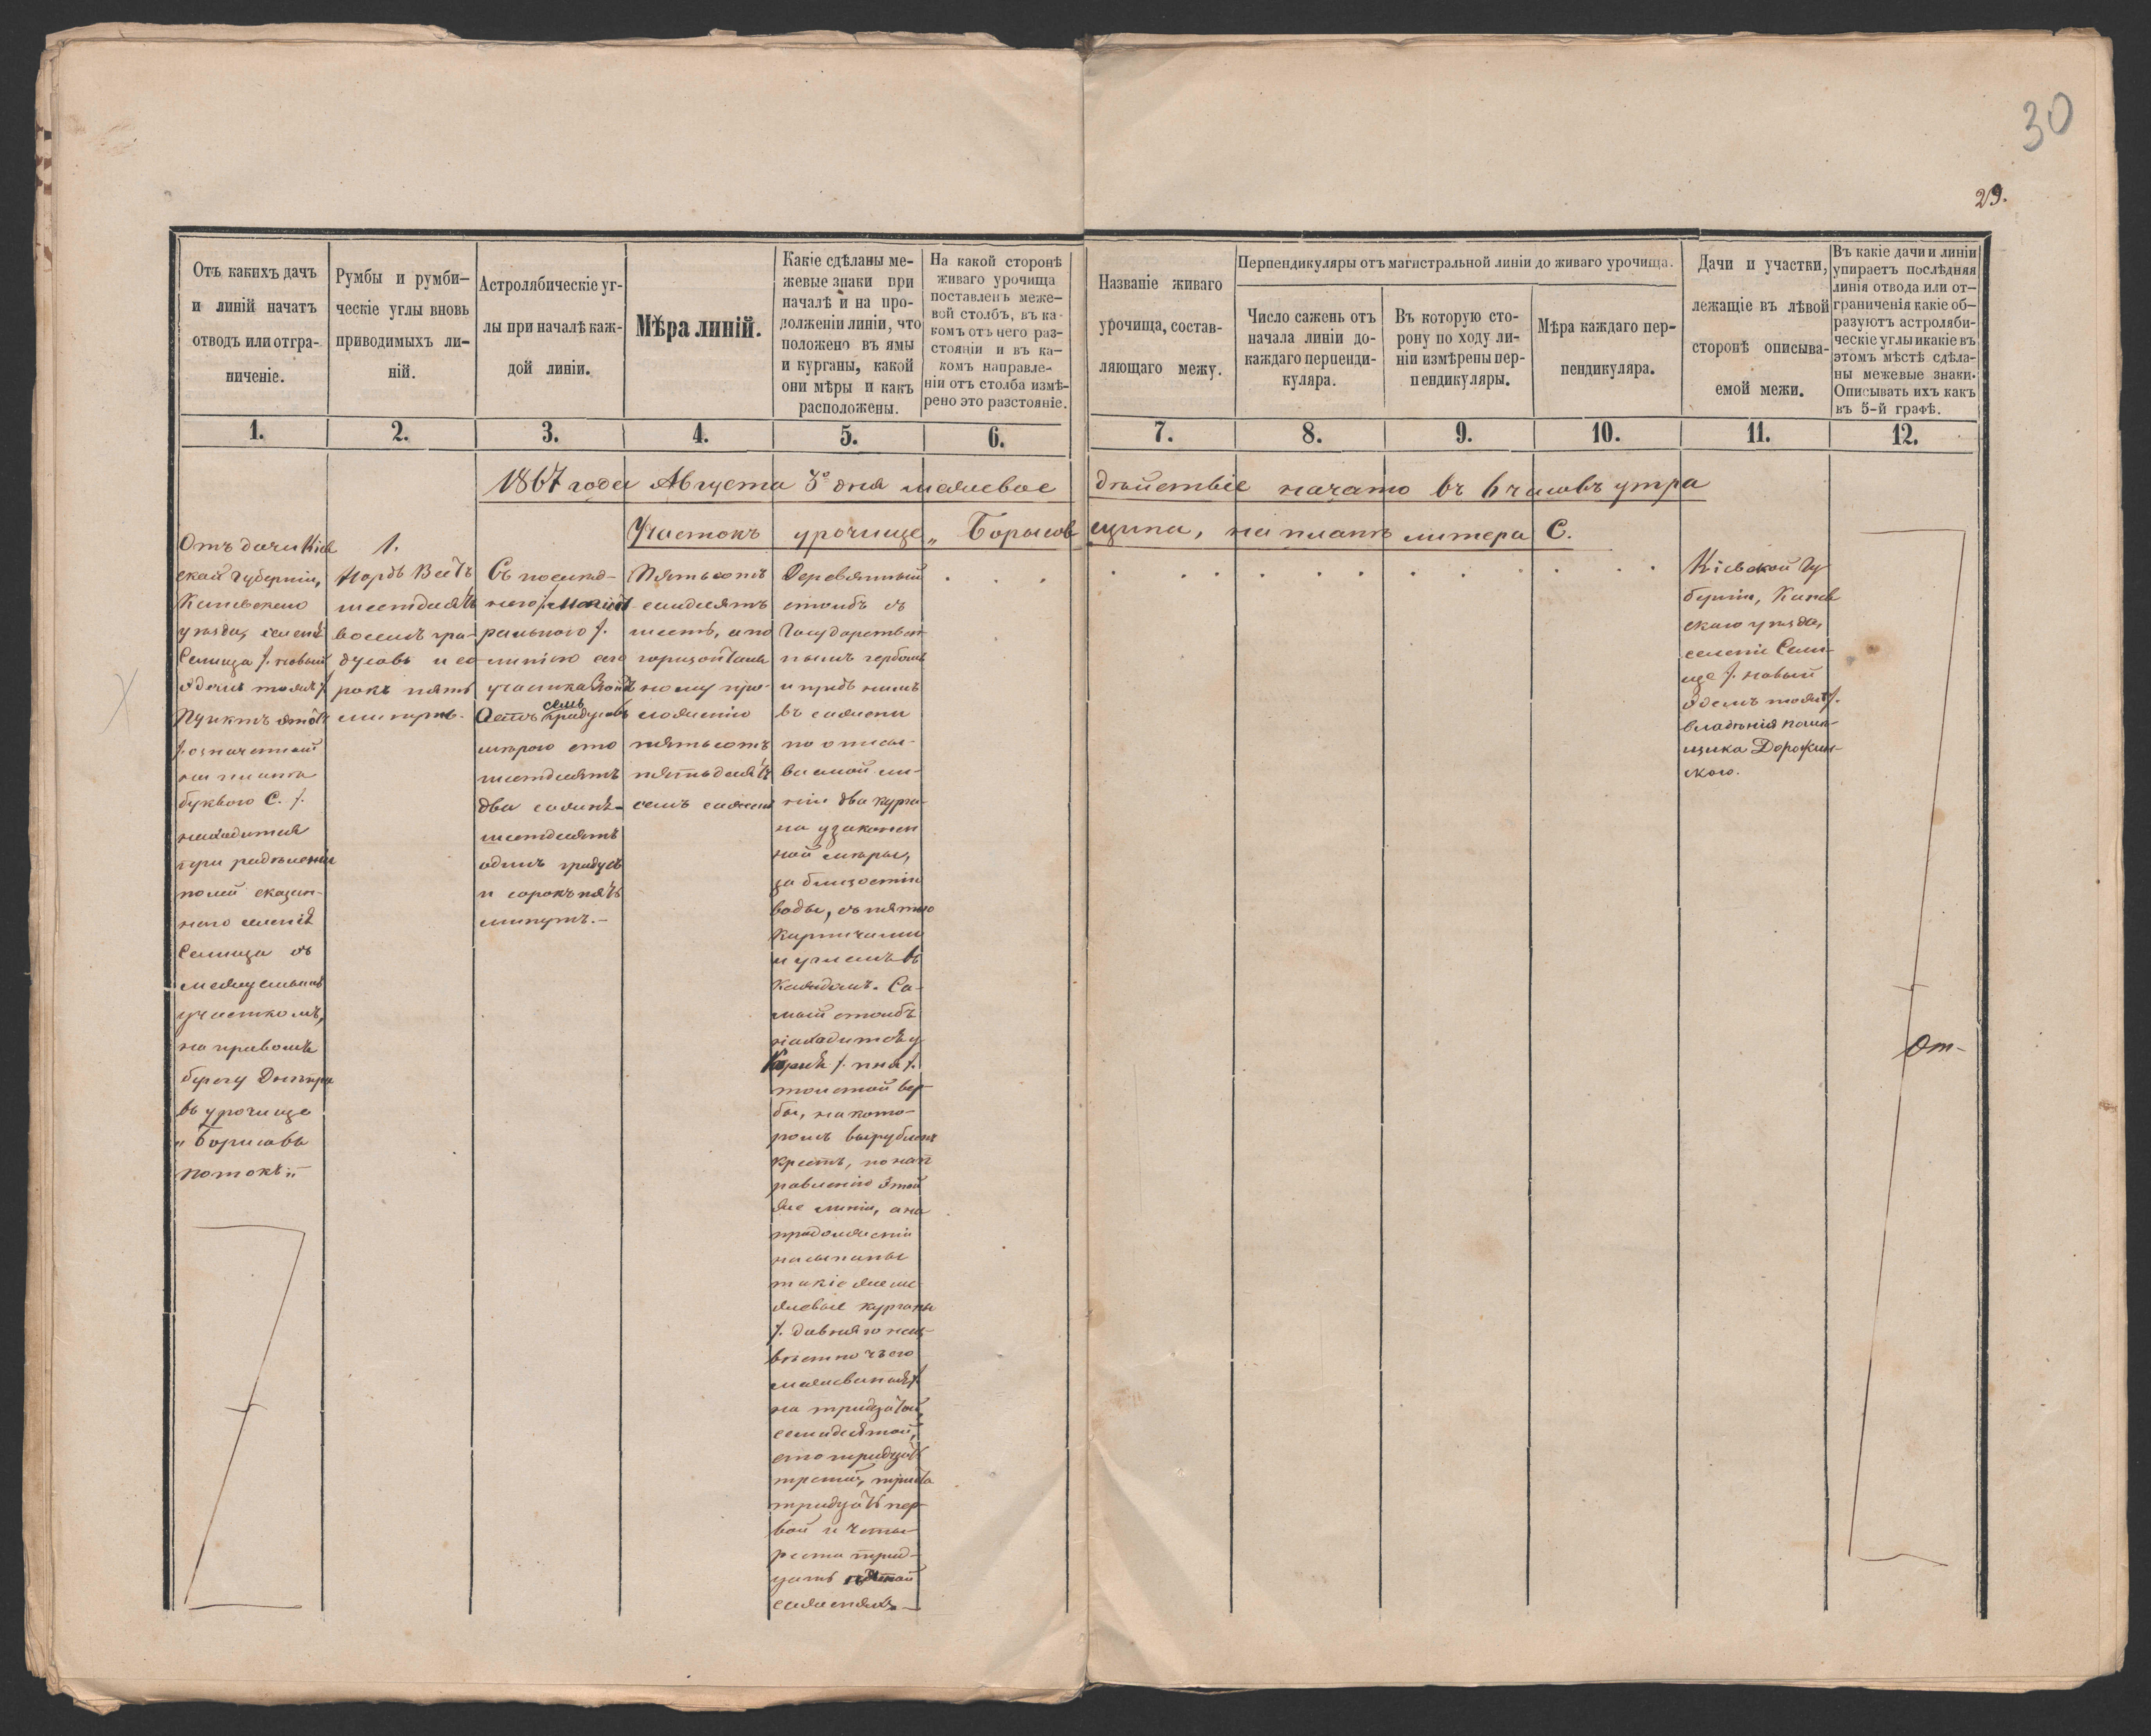 30
29.
Отъ какихъ дачъ
и линій начатъ
отводъ или отгра-
ниченіе.
Румбы и румби-
ческіе углы вновь
приводимыхъ ли-
ній.
Астролябическіе уг-
лы при началѣ каж-
дой линіи.
Мѣра линій.
Какіе сдѣланы ме-
жевые знаки при
началѣ и на про-
долженіи линіи, что
положено въ ямы
и курганы, какой
они мѣры и какъ
расположены.
На какой сторонѣ
живаго урочища
поставленъ меже-
вой столбъ, въ ка-
комъ отъ него раз-
стояніи и въ ка-
комъ направле-
ніи отъ столба измѣ-
рено это разстояніе.
Названіе живаго
урочища, состав-
ляющаго межу.
Перпендикуляры отъ магистральной линіи до живаго урочища.
Число сажень отъ
начала линіи до-
каждаго перпенди-
куляра.
Въ которую сто-
рону по ходу ли-
ніи измѣрены пер-
пендикуляры.
Мѣра каждаго пер-
пендикуляра.
Дачи и участки,
лежащіе въ лѣвой
сторонѣ описыва-
емой межи.
Въ какіе дачи и линіи
упираетъ послѣдняя
линія отвода или от-
граниченія какіе об-
разуютъ астроляби-
ческіе углы и какіе въ
этомъ мѣстѣ сдѣла-
ны межевые знаки.
Описывать ихъ какъ
въ 5-й графѣ.
1. 2. 3. 4. 5. 6. 7. 8. 9. 10. 11. 12.
1867 года Августа 3го дня межевое дѣйствіе начато въ 6 часовъ утра
Участокъ урочище „Борисовщина, на планѣ литера С.
Отъ дачи Кіев
ской губерніи,
Каневскаго
уѣзда, селенія
Селища /. новый
Эдемъ тожъ /.
Пунктъ этотъ
/. означенный
на планѣ
буквою С. /.
находится
при раздѣленіи
полей сказан-
наго селенія
Селища съ
межуемымъ
участкомъ,
на правомъ
берегу Днѣпра
въ урочище
„Борисовъ
потокъ“
1.
Нордъ Вестъ
шестдесятъ
восемь гра-
дусовъ и со-
рокъ пять
минутъ.
Съ послѣд-
нею /. магист
ральною /.
линіею сего
участка Зюйдъ
Остъ семь градусовъ
мѣрою сто
шестдесятъ
два сажня
шестдесятъ
одинъ градусъ
и сорокъ пять
минутъ.—
Пятьсотъ
семдесятъ
шесть, а по
горизонталь
ному про-
ложенію
пятьсотъ
пятьдесятъ
семь сажень
Деревянный
столбъ съ
Государствен
нымъ гербомъ
и предъ нимъ
въ сажени
по описы-
ваемой ли-
ніи два курга-
на узаконен
ной мѣры,
за близостію
воды, съ пятью
кирпичами
и углемъ въ
каждомъ. Са-
мый столбъ
находится у
корня /. пня /.
толстой вер
бы, на кото-
ромъ вырубленъ
крестъ, по нап
равленію этой
же линіи, а на
продолженіи
насыпаны
такіе же ме-
жевые курганы
/. давняго неиз-
вѣстно чьего
межеванія /.
на тридцатой,
семидесятой,
сто тридцать
третій, триста
тридцать пер-
вой и четы-
реста трид-
цать пятой
саженяхъ —
Кіевской Гу
берніи, Канев
скаго уѣзда,
селеніе Сели-
ще /. новый
Эдемъ тожъ /.
владѣнія помѣ-
щика Дорожин-
скаго.
От-